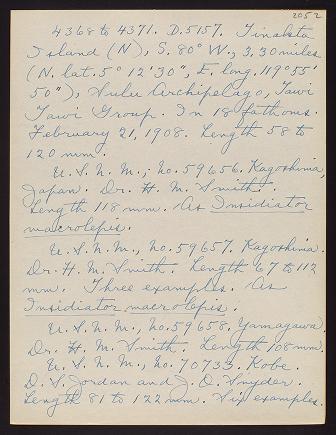 2052
4368 to 4371. D.5157. Tinakta
Island (N), S. 80° W., 3.30 miles
(N. lat. 5° 12' 30", E. long. 119° 55'
50"), Sulu Archipelago, Tawi
Tawi Group. In 18 fathoms.
February 21, 1908. Length 58 to
120 mm.
U. S. N. M., no. 59656. Kagoshima,
Japan. Dr. H. M. Smith.
Length 118 mm. As Insidiator
macrolepis.
U. S. N. M., no. 59657. Kagoshima.
Dr. H. M. Smith. Length 67 to 112
mm. Three examples. As
Insidiator macrolepis.
U. S. N. M., no. 59658. Yamagawa.
Dr. H. M. Smith. Length 108 mm.
U. S. N. M., no. 70733. Kobe.
D. S. Jordan and J. O. Snyder.
Length 81 to 122 mm. Six examples.